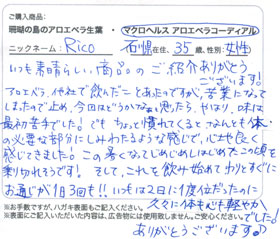 この商品の購入
珊瑚の島のアロエベラ生葉・マクロヘルス アロエベラコーディアル
ニックネーム：Rico 石川県在住、35歳、性別：女性
いつも素晴らしい商品のご紹介ありがとう
ございます。
アロエベラ、他社で飲んだことあったのですが、苦業になって
しまったので止め、今回はどうかなぁ？と思ったら、やはり、味は
最初苦手でした。でもちょっと慣れてくると、なんとも体
の必要な部分にしみわたるような感じで、心地良く
感じてきました。この暑くなってじめじめしはじめたこの頃を
乗り切れそうです！そして、これを飲み始めてからすぐに
お通じが1日3回も!!いつもは2日に1度位だったのに
久々に体も心も軽やか
でした！
※お手数ですが、ハガキ表面もご記入ください。
※裏面にご記入いただいた内容は、広告物には使用致しません。ご安心ください。
ありがとうございます♪